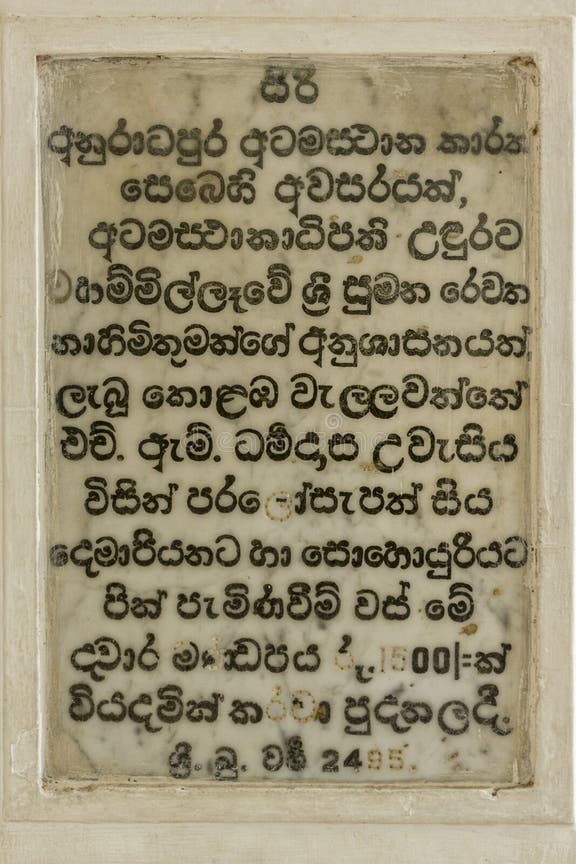 සිරි
අනුරාධපුර අටමස්ථාන කාර්ය
සෙබෙහි අවසරයත්,
අටමස්ථානාධිපති උඳුරව
හම්මිල්ලෑවේ ශ්‍රී සුමන රේවත
නාහිමිතුමන්ගේ අනුශාසනයත්,
ලැබූ කොළඹ වැල්ලවත්තේ
එච්. ඇම්. ධර්මදාස උවැසිය
විසින් පරලෝසැපත් සිය
දෙමාපියනට හා සොහොයුරියට
පින් පැමිණවීම් වස් මේ
ද්වාර මණ්ඩපය රු. 1500/=ක්
වියදමින් කරවා පුදනලදී.
ශ්‍රී. බු. වර්ෂ 2495.